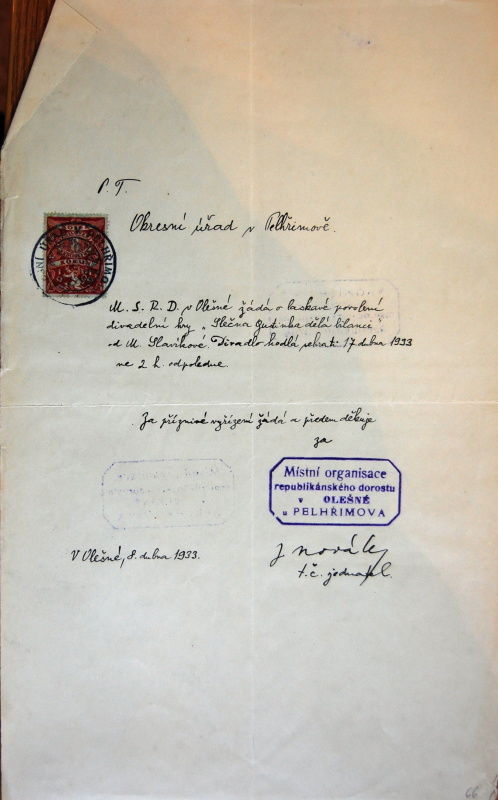 P. T.
Okresní úřad v Pelhřimově.
M. S. R. D. v Olešné žádá o laskavé povolení
divadelní hry „Slečna Gutinka dělá bilanci"
od M. Slavíkové. Divadlo hodlá sehrati 17 dubna 1933
ve 2 h. odpoledne.
Za příznivé vyřízení žádá a předem děkuje
za
Místní organisace
republikánského dorostu
v OLEŠNÉ
u PELHŘIMOVA
V Olešné, 8. dubna 1933.
J Novák
t. č. jednatel.